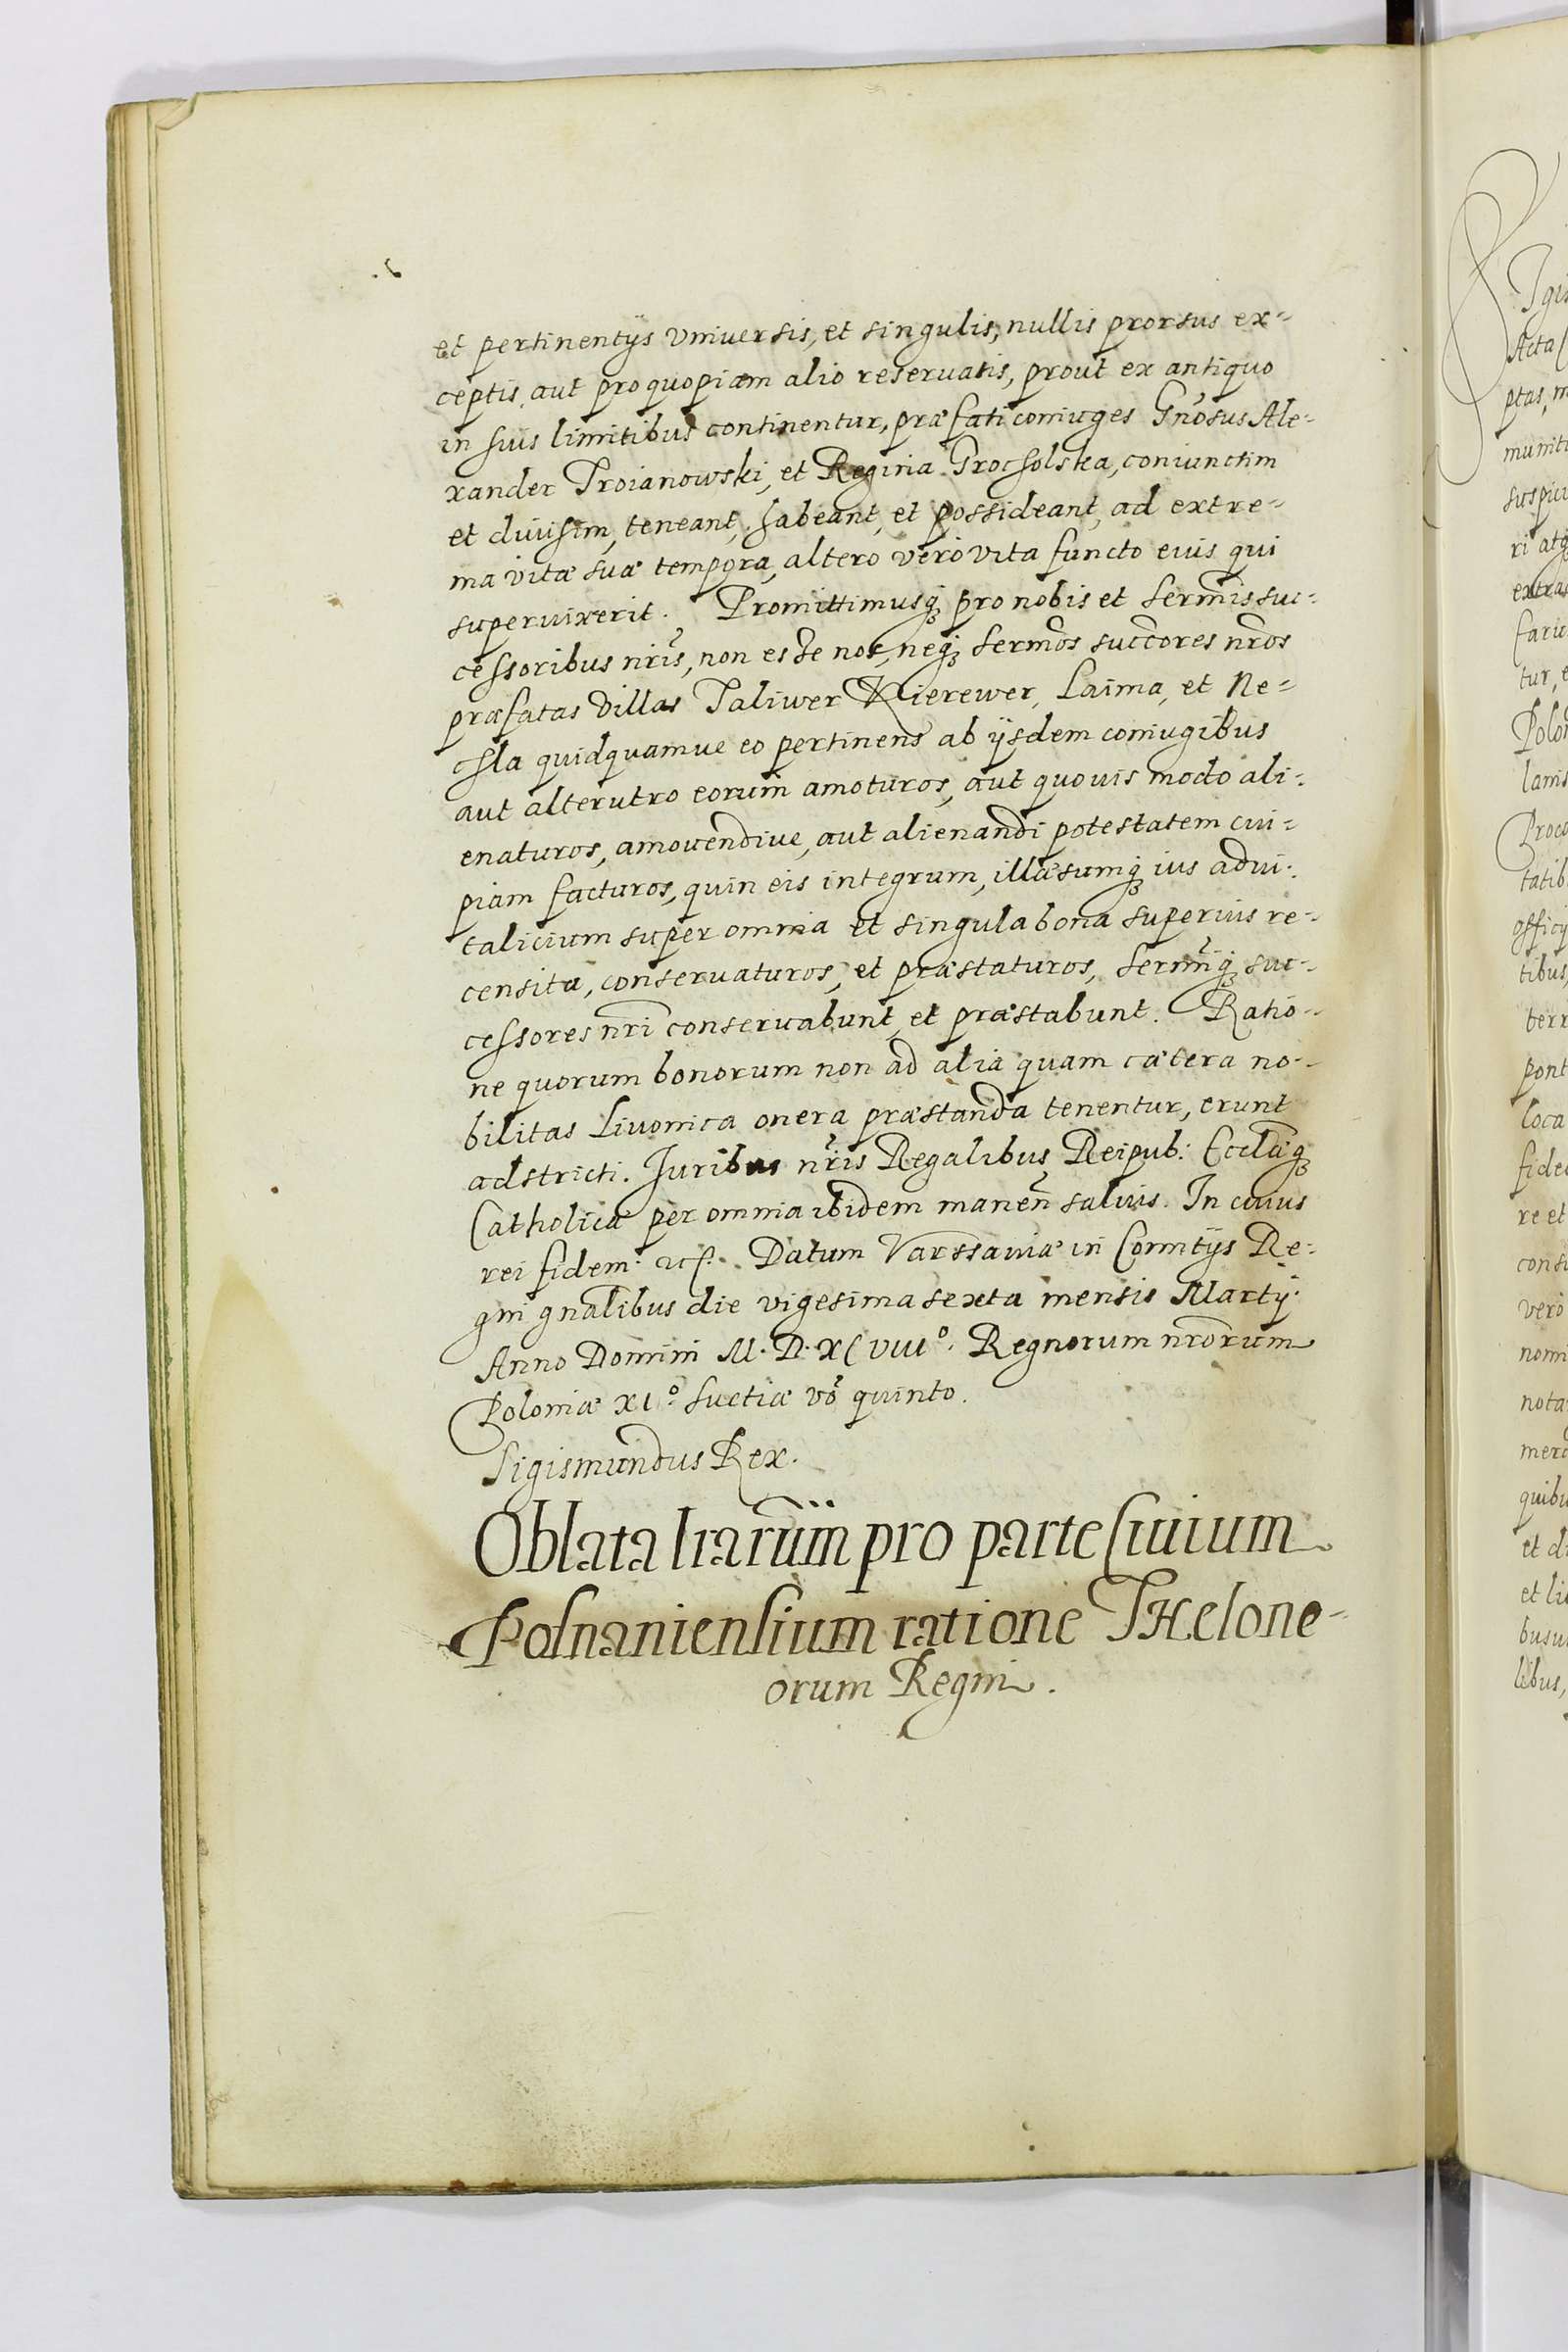 et pertinentijs vniuersis, et singulis, nullis prorsus ex=
ceptis, aut pro quopiam alio reseruatis, prout ex antiquo
in suis limitibus continentur, præfati coniuges Gnosus Ale=
xander Troianowski, et Regina Grocholska, coniunctim
et diuisim, teneant, habeant, et possideant, ad extre=
ma vitæ suæ tempora, altero vero vita functo eius qui
superuixerit. Promittimusq; pro nobis et Sermis suc=
cessoribus nris, non esse nos, neq; Sermos succores nros
præfatas villas Taliwer Kierewer, Laima, et Ne=
hla quidquamue eo pertinens ab ijsdem coniugibus
aut alterutro eorum amoturos, aut quouis modo ali=
enaturos, amouendiue, aut alienandi potestatem cui=
piam facturos, quin eis integrum, illæsumq; ius adui=
talicium super omnia et singula bona superius re=
censita, conseruaturos, et præstaturos, Sermiq; suc=
cessores nri conseruabunt, et præstabunt. Ratio=
ne quorum bonorum non ad alia quam cætera no=
bilitas Liuonica onera præstanda tenentur, erunt
adstricti. Juribus nris Regalibus Reipub: Ecclæq;
Catholicæ per omnia ibidem manen saluis. In cuius
rei fidem etc. Datum Varssauiæ in Comitijs Re=
gni gnalibus die vigesima sexta mensis Martij
Anno Domini M.D.XCVIII°. Regnorum nrorum
Poloniæ XI° Suetiæ vo quinto.
Sigismundus Rex.
Oblata lrarum pro parte Ciuium
Posnaniensium ratione Thelone=
orum Regni.